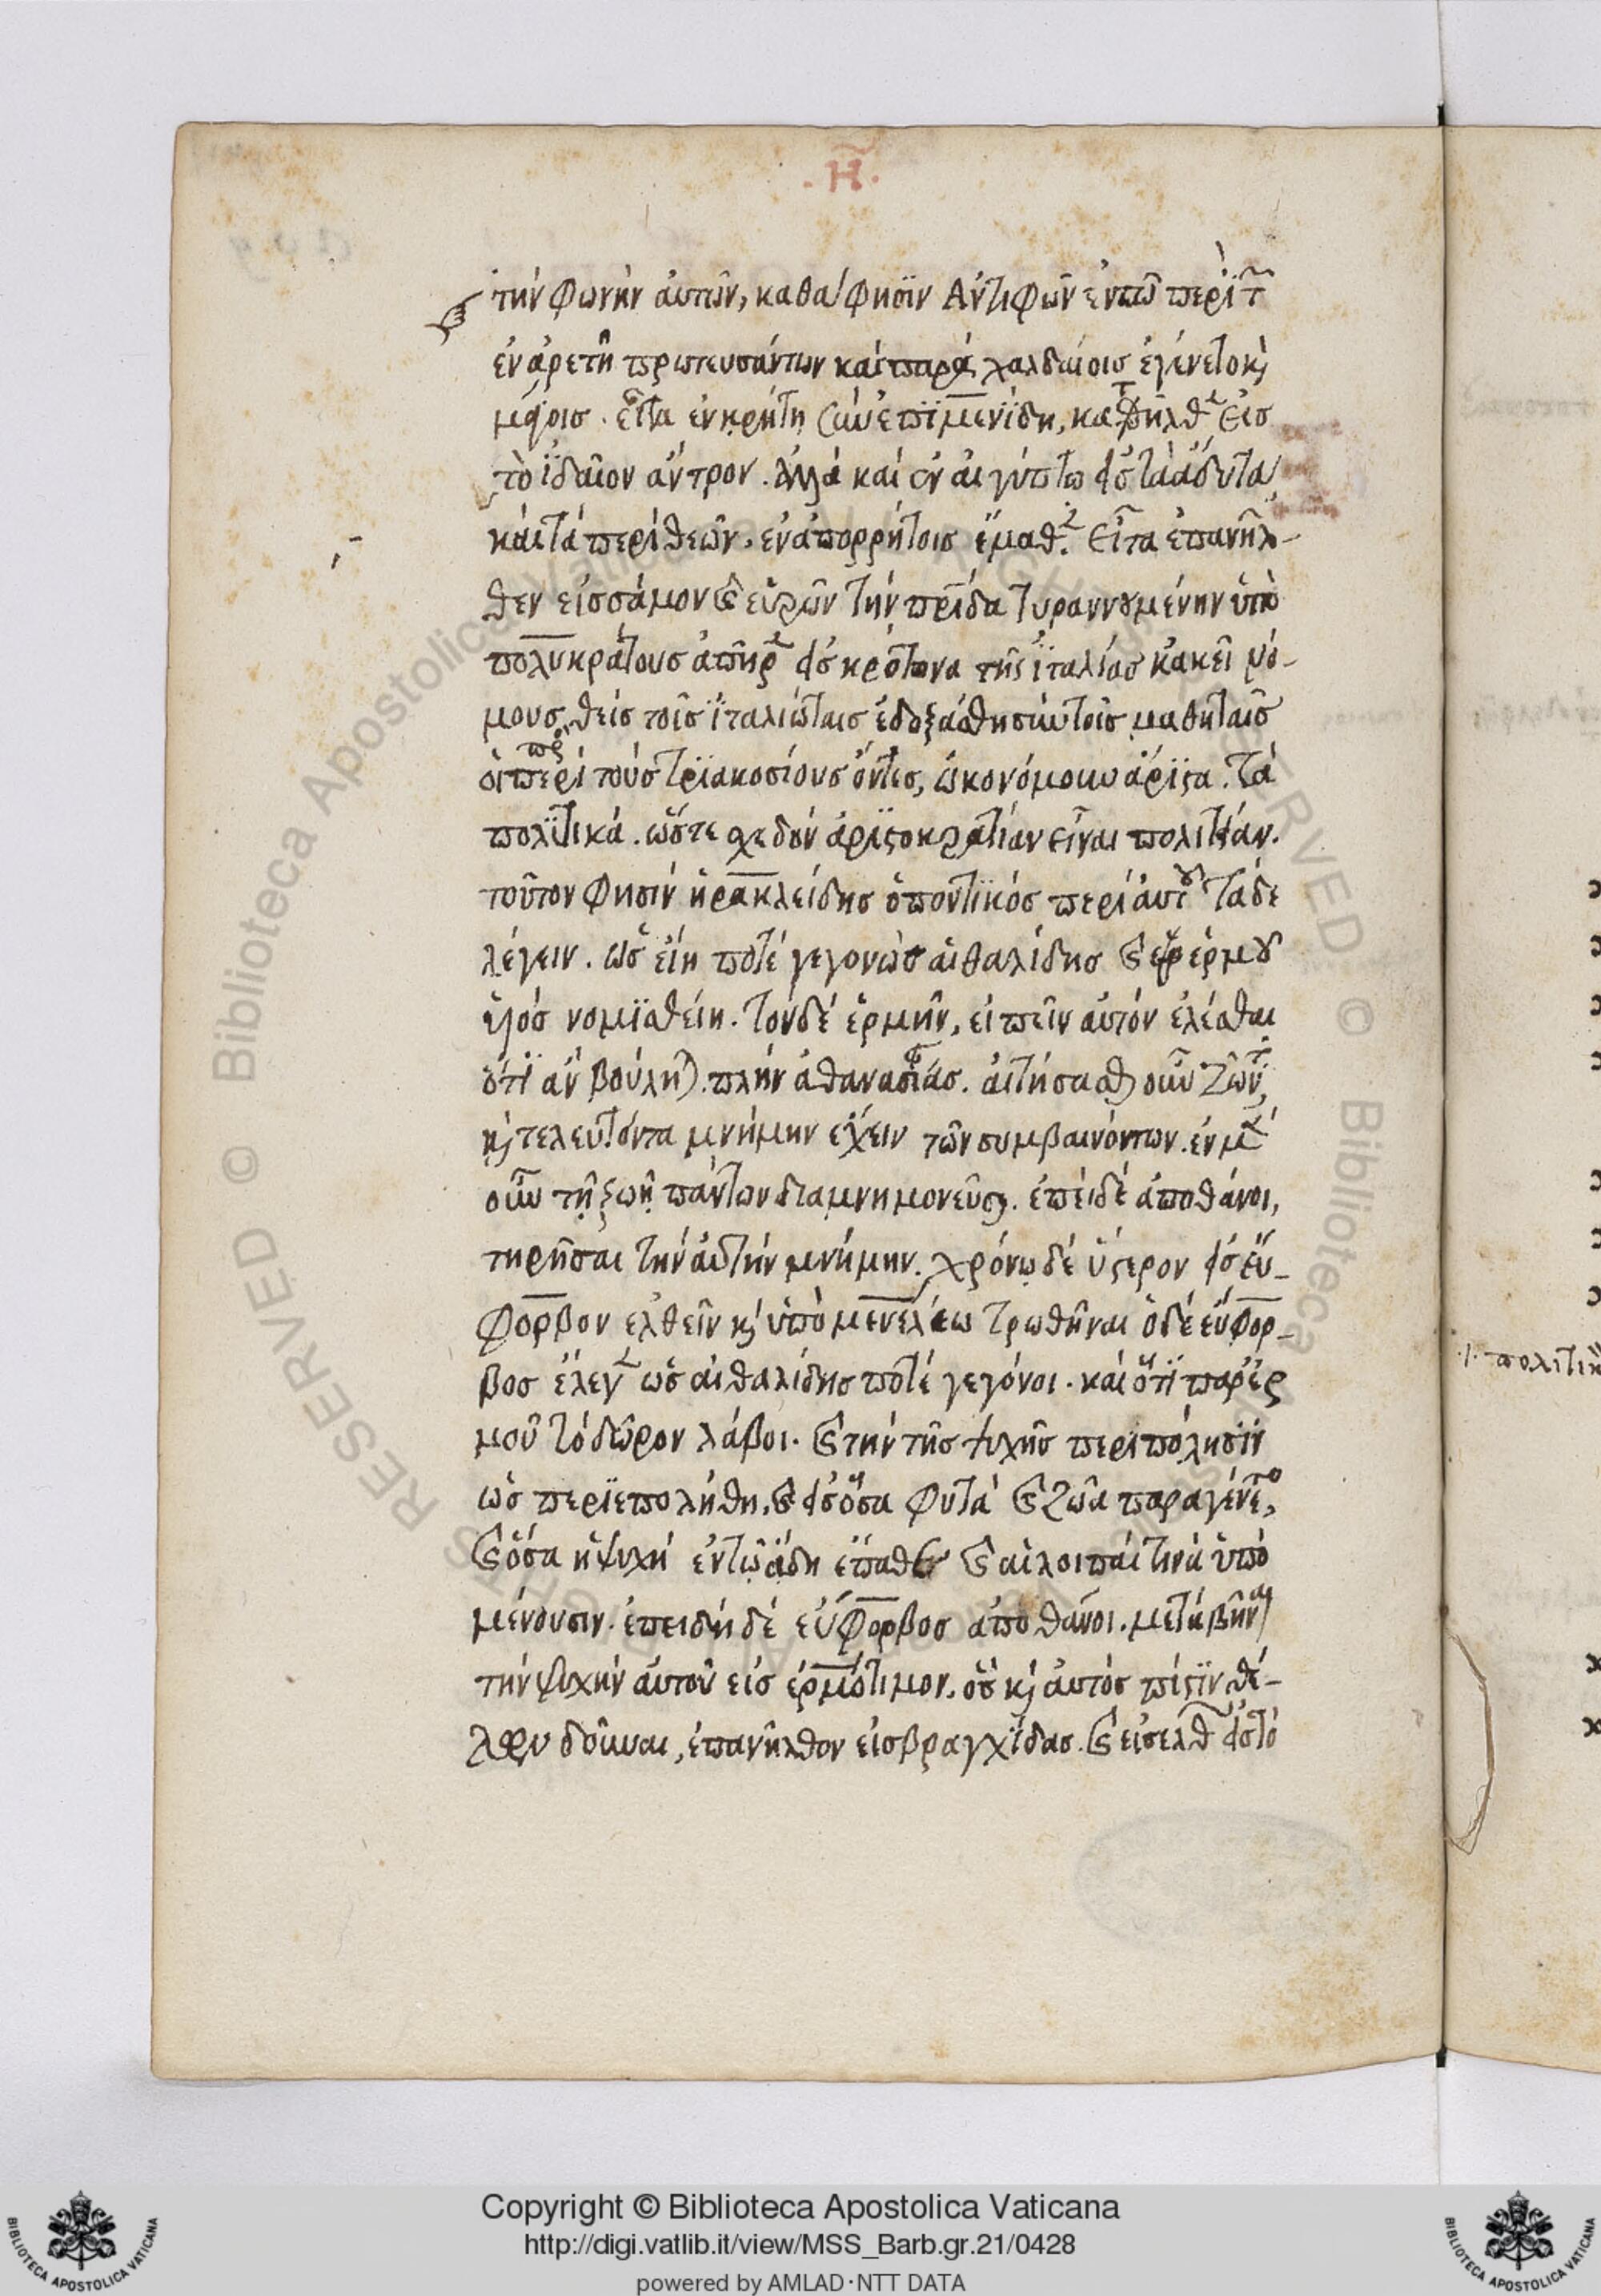 .Η̃.
τὴν φωνὴν ἀυτῶν, καθα φησϊν Αντιφῶν ἐν τῶ περὶ τ῀
ἐν ἀρετῆ πρωτευσάντων καὶ παρὰ χαλδαίοις ἐγένετο κ
μάγοις. εἶτα ἐν κρήτη σὺν ἐπϊμενίδη, κατῆλθε εἰς
τὸ ϊδαῖον ἄντρον. ἀλλὰ καὶ ἐν αἰγύπτω εἰς τὰ ἄδυτα
καὶ τὰ περὶ θεῶν, ἐν ἀπορρήτοις ἔμαθε. εἶτα ἐπανῆλ-
θεν εἰς σάμον κ εὑρὼν τὴν πρίδα τυραννουμένην ὑπὸ
πολυκράτους ἀπῆρε εἰς κρότωνα τῆς ϊταλίας κἀκεῖ νό-
μους θεὶς τοῖς ϊταλιώταις ἐδοξάσθη σὺν τοῖς μαθηταῖς
οἱ περὶ τοὺς τρϊακοσίους ὄντες, ὠκονόμουν ἄρϊστα. τὰ
πολϊτικά. ὥστε σχεδὸν ἀρϊστοκρατίαν εἶναι πολιτείαν.
τοῦτον φησὶν ἡρακλείδης ὁ ποντϊκὸς περὶ ἁυτου τάδε
λέγειν. ὡς εἴη ποτὲ γεγονὼς αἰθαλίδης κ ερμοῦ
υἱὸς νομϊσθείη. τὸν δὲ ἑρμῆν, εἰπεῖν αὐτὸν ἑλέσθαι
ὅτϊ ἂν βούληται. πλὴν ἀθανασϊας. αἰτήσασθαι οὖν ζῶντ
κ τελευτῶντα μνήμην ἔχειν τῶν συμβαινόντων. ἐν μὲν
οὖν τῆ ζωῆ πάντων διαμνημονεῦσαι. ἐπεὶ δὲ ἀποθάνοι,
τηρῆσαι τὴν ἀυτὴν μνήμην. χρόνω δὲ ὕστερον εἰς ἔυ-
φορβον ἐλθεῖν κ ὑπὸ μενελέω τρωθῆναι ὁ δὲ εὔφορ-
βος ἔλεγε ὡς αἰθαλίδης ποτὲ γεγόνοι. καὶ ὅτϊ παρ ἑρ
μοῦ τὸ δῶρον λάβοι. κ τὴν τῆς ψυχῆς περιπόλησϊν
ὡς περϊεπολήθη, κ εἰς ὅσα φυτὰ κ ζῶα παραγένετο,
κ ὅσα ἡ ψυχὴ ἐν τῶ ἅδη ἔπαθε κ αἱ λοιπαὶ τινὰ ὑπο
μένουσιν. ἐπειδὴ δὲ εὔφορβος ἀποθάνοι. μεταβῆναι
τὴν ψυχὴν ἀυτοῦ εἰς ἑρμότιμον, ὃς κ ἀυτὸς πίστϊν θέ-
λων δοῦναι, ἐπανῆλθον εἰς βραγχϊδας. κ εἰσελθ εἰς τὸ
Copyright © Biblioteca Apostolica Vaticana
http://digi.vatlib.it/view/MSS_Barb.gr.21/0428
powered by AMLAD·NTT DATA